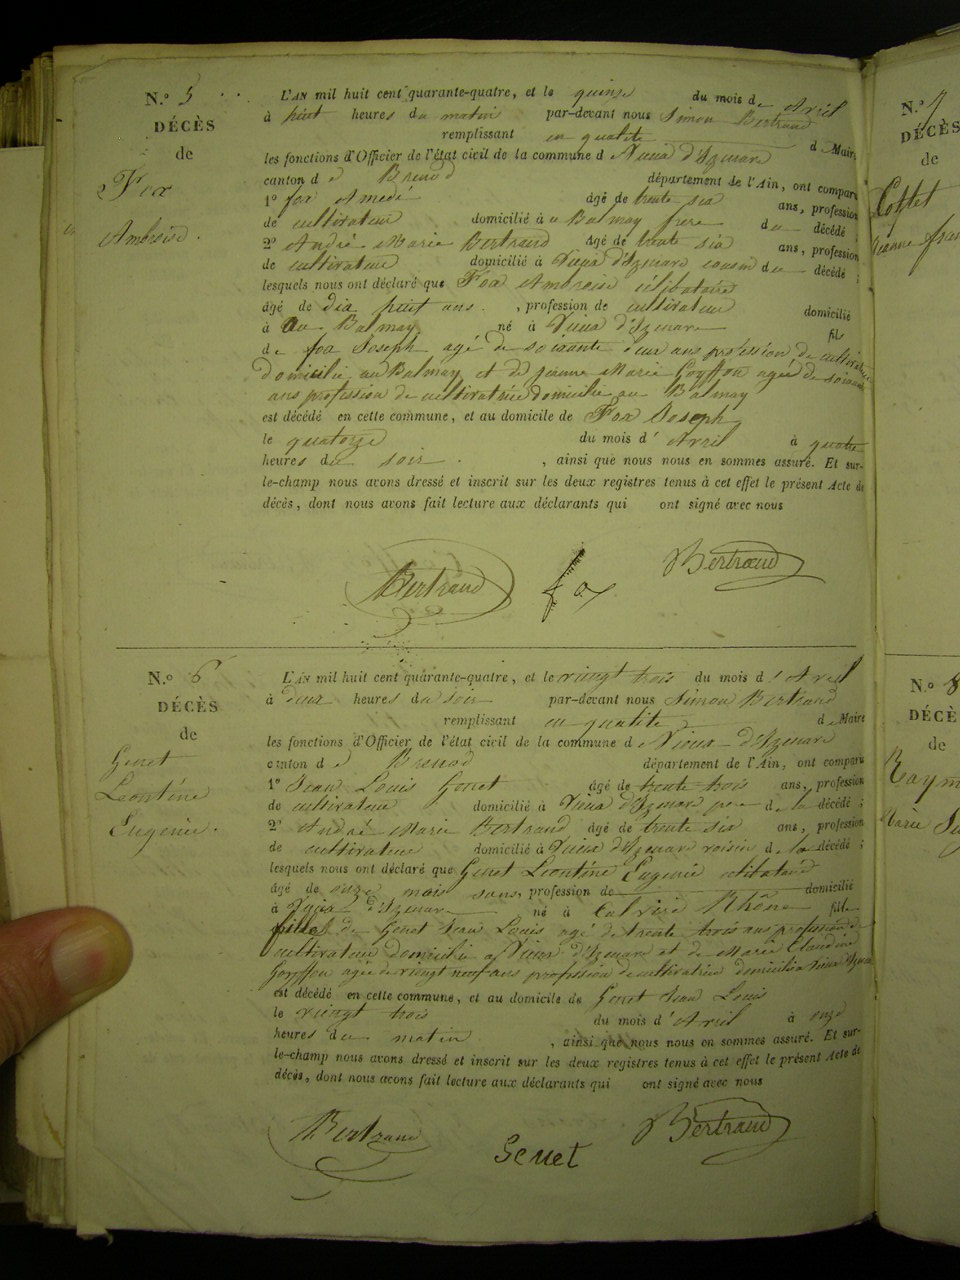 N.º 5
DÉCÈS
de
Fox
Ambroise.
L'AN mil huit cent quarante-quatre, et le quinze du mois de Avril
à huit heures du matin par-devant nous Simon Bertrand
remplissant en qualité d Maire
les fonctions d'Officier de l'état civil de la commune d Vieux d'Izenave
canton d e Brenod département de l'Ain, ont comparu
1º fox Amedé âgé de trente six ans, profession
de cultivateur domicilié à u Balmay frere du décédé ;
2º André Marie Bertrand âgé de trente six ans, profession
de cultivateur domicilié à Vieux d'Izenave cousin du décédé ;
lesquels nous ont déclaré que Fox Ambroise célibataire
âgé de dix huit ans. , profession de cultivateur domicilié
à au Balmay né à Vieux d'Izenave fils
de fox Joseph agé de soixante deux ans profession de cultivateur
domicilié au Balmay et de jeanne Marie Goyffon agée de soixante
ans profession de cultivatrice domicilié au Balmay
est décédé en cette commune, et au domicile de Fox Joseph
le quatorze du mois d' Avril à quatre
heures du soir , ainsi que nous nous en sommes assuré. Et sur-
le-champ nous avons dressé et inscrit sur les deux registres tenus à cet effet le présent Acte de
décès, dont nous avons fait lecture aux déclarants qui ont signé avec nous
Bertrand fox Bertrand
N.º 6
DÉCÈS
de
Genet
Leontine
Eugenie.
L'AN mil huit cent quarante-quatre, et le vingt trois du mois d'Avril
à deux heures du soir par-devant nous Simon Bertrand
remplissant en qualité d Maire
les fonctions d'Officier de l'état civil de la commune d Vieux d'Izenave
canton d e Brenod département de l'Ain, ont comparu
1º Jean Louis Genet âgé de trente trois ans, profession
de cultivateur domicilié à Vieux d'Izenave pere d e la décédé ;
2º André Marie Bertrand âgé de trente six ans, profession
de cultivateur domicilié à Vieux d'Izenave voisin d e la décédé ;
lesquels nous ont déclaré que Genet Leontine Eugenie célibataire
âgé de onze mois sans, profession de domicilié
à Vieux d'Izenave né à Rhône fille
fille de Genet Jean Louis agé de trente trois ans profession de
cultivateur domicilié à Vieux d'Izenave et de Marie Claudine
Goyffon agée de vingt neuf ans profession de cultivatrice domicilié à Vieux d'Izenave
est décédé en cette commune, et au domicile de Genet Jean Louis
le vingt trois du mois d'Avril à onze
heures du matin , ainsi que nous nous en sommes assuré. Et sur-
le-champ nous avons dressé et inscrit sur les deux registres tenus à cet effet le présent Acte de
décès, dont nous avons fait lecture aux déclarants qui ont signé avec nous
Bertrand Genet Bertrand
N.º 7
DÉCÈS
de
Cottet
N.º 8
DÉCÈ
de
Raym